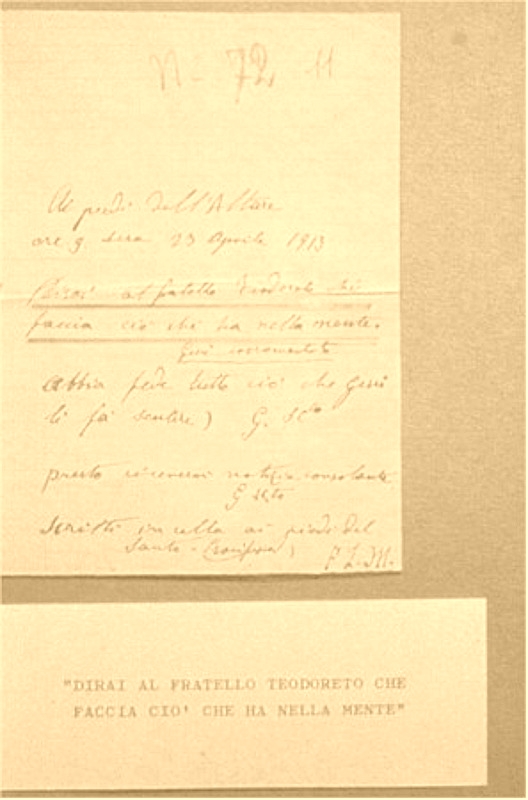 N= 72 11
Ai piedi dell'Altare
ore 9 sera 23 Aprile 1913
Dirai al fratello Teodoreto che
faccia ciò che ha nella mente.
Gesù sacramentato
abbia fede tutto ciò che Gesù
li fà sentire) G. Scto
presto riceverai notizia consolante
G Scto
Scritto in cella ai piedi del
Santo Crocifisso)
F. L. M.
"DIRAI AL FRATELLO TEODORETO CHE
FACCIA CIO' CHE HA NELLA MENTE"